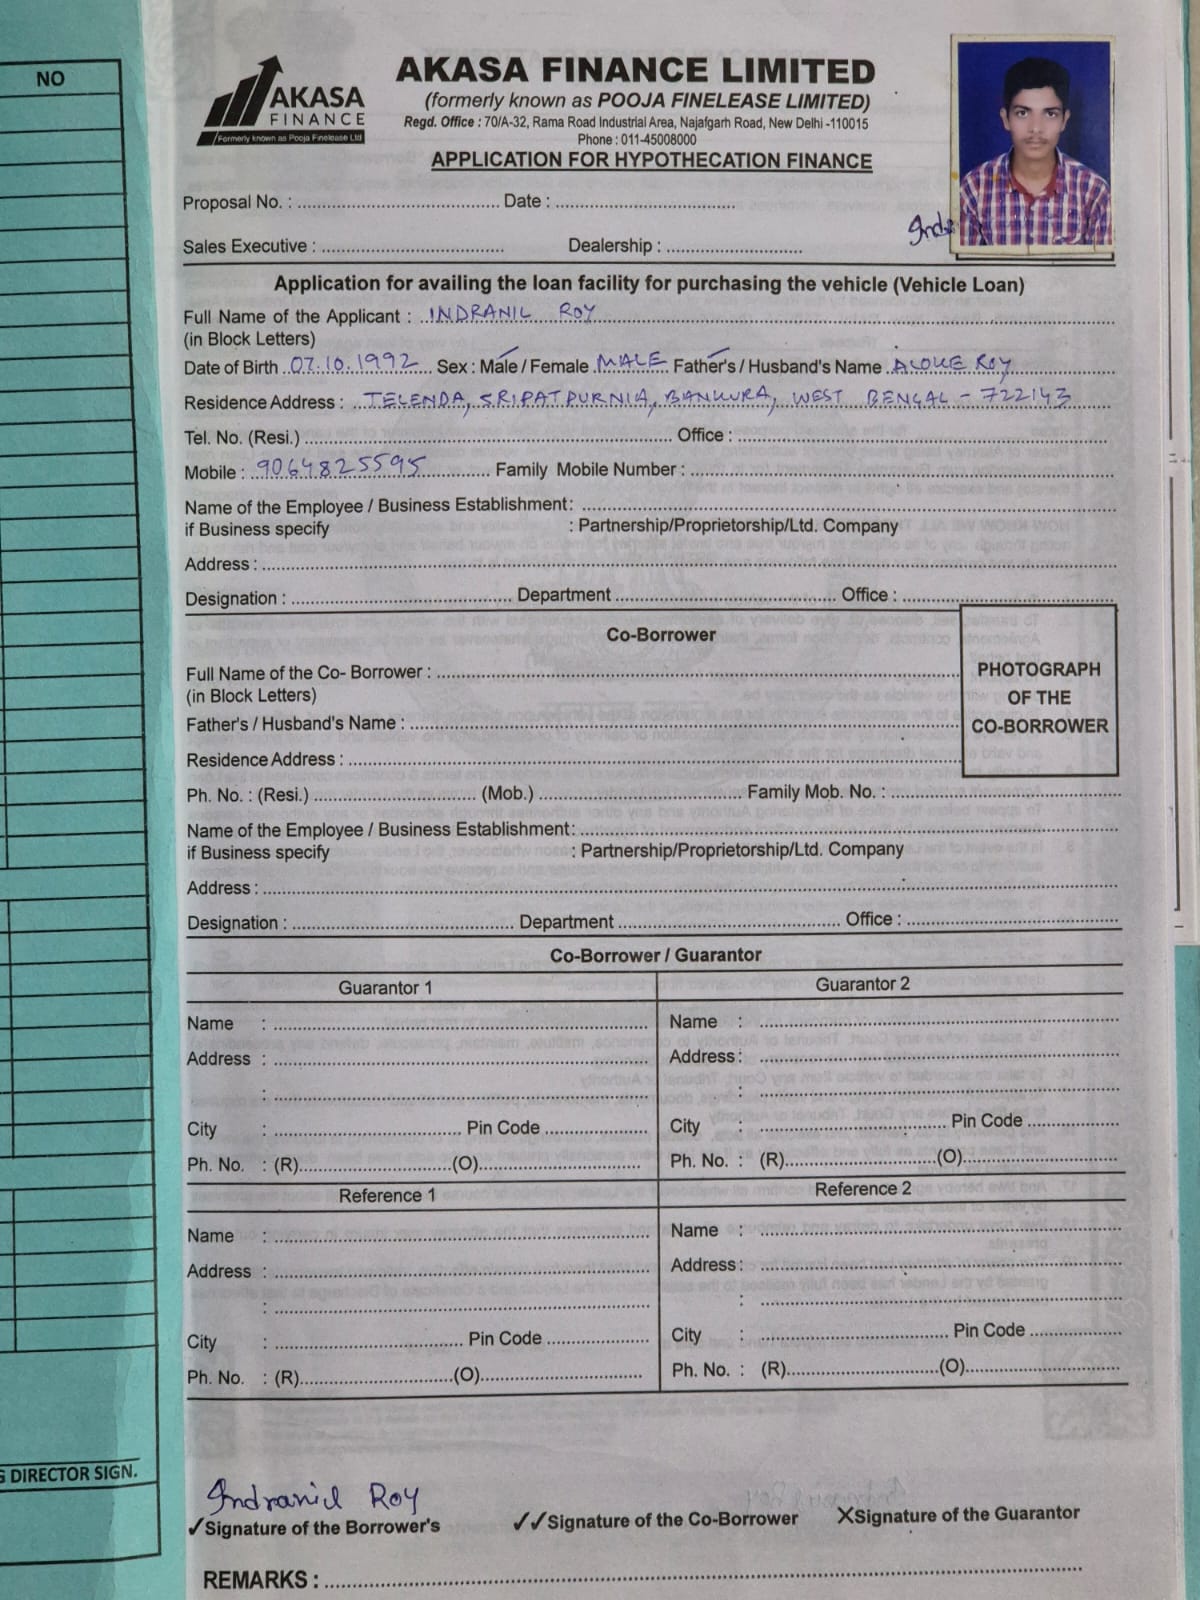 NO
AKASA
FINANCE
Formerly known as Pooja Finelease Ltd
AKASA FINANCE LIMITED
(formerly known as POOJA FINELEASE LIMITED)
Regd. Office : 70/A-32, Rama Road Industrial Area, Najafgarh Road, New Delhi -110015
Phone : 011-45008000
APPLICATION FOR HYPOTHECATION FINANCE
Proposal No. : Date :
Sales Executive : Dealership :
Application for availing the loan facility for purchasing the vehicle (Vehicle Loan)
Full Name of the Applicant : INDRANIL ROY
(in Block Letters)
Date of Birth 07.10.1992 Sex : Male / Female MALE Father's / Husband's Name ALOKE ROY
Residence Address : TELENDA, SRIPATPURNIA, BANKURA, WEST BENGAL - 722143
Tel. No. (Resi.) Office :
Mobile : 9064825595 Family Mobile Number :
Name of the Employee / Business Establishment:
if Business specify : Partnership/Proprietorship/Ltd. Company
Address :
Designation : Department Office :
Co-Borrower
Full Name of the Co- Borrower :
(in Block Letters)
Father's / Husband's Name :
Residence Address :
PHOTOGRAPH
OF THE
CO-BORROWER
Ph. No. : (Resi.) (Mob.) Family Mob. No. :
Name of the Employee / Business Establishment:
if Business specify : Partnership/Proprietorship/Ltd. Company
Address :
Designation : Department Office :
Co-Borrower / Guarantor
Guarantor 1 Guarantor 2
Name : Name :
Address : Address :
: :
City : Pin Code City : Pin Code
Ph. No. : (R) (O) Ph. No. : (R) (O)
Reference 1 Reference 2
Name : Name :
Address : Address :
: :
City : Pin Code City : Pin Code
Ph. No. : (R) (O) Ph. No. : (R) (O)
DIRECTOR SIGN.
Indranil Roy
✓Signature of the Borrower's ✓✓Signature of the Co-Borrower XSignature of the Guarantor
REMARKS :